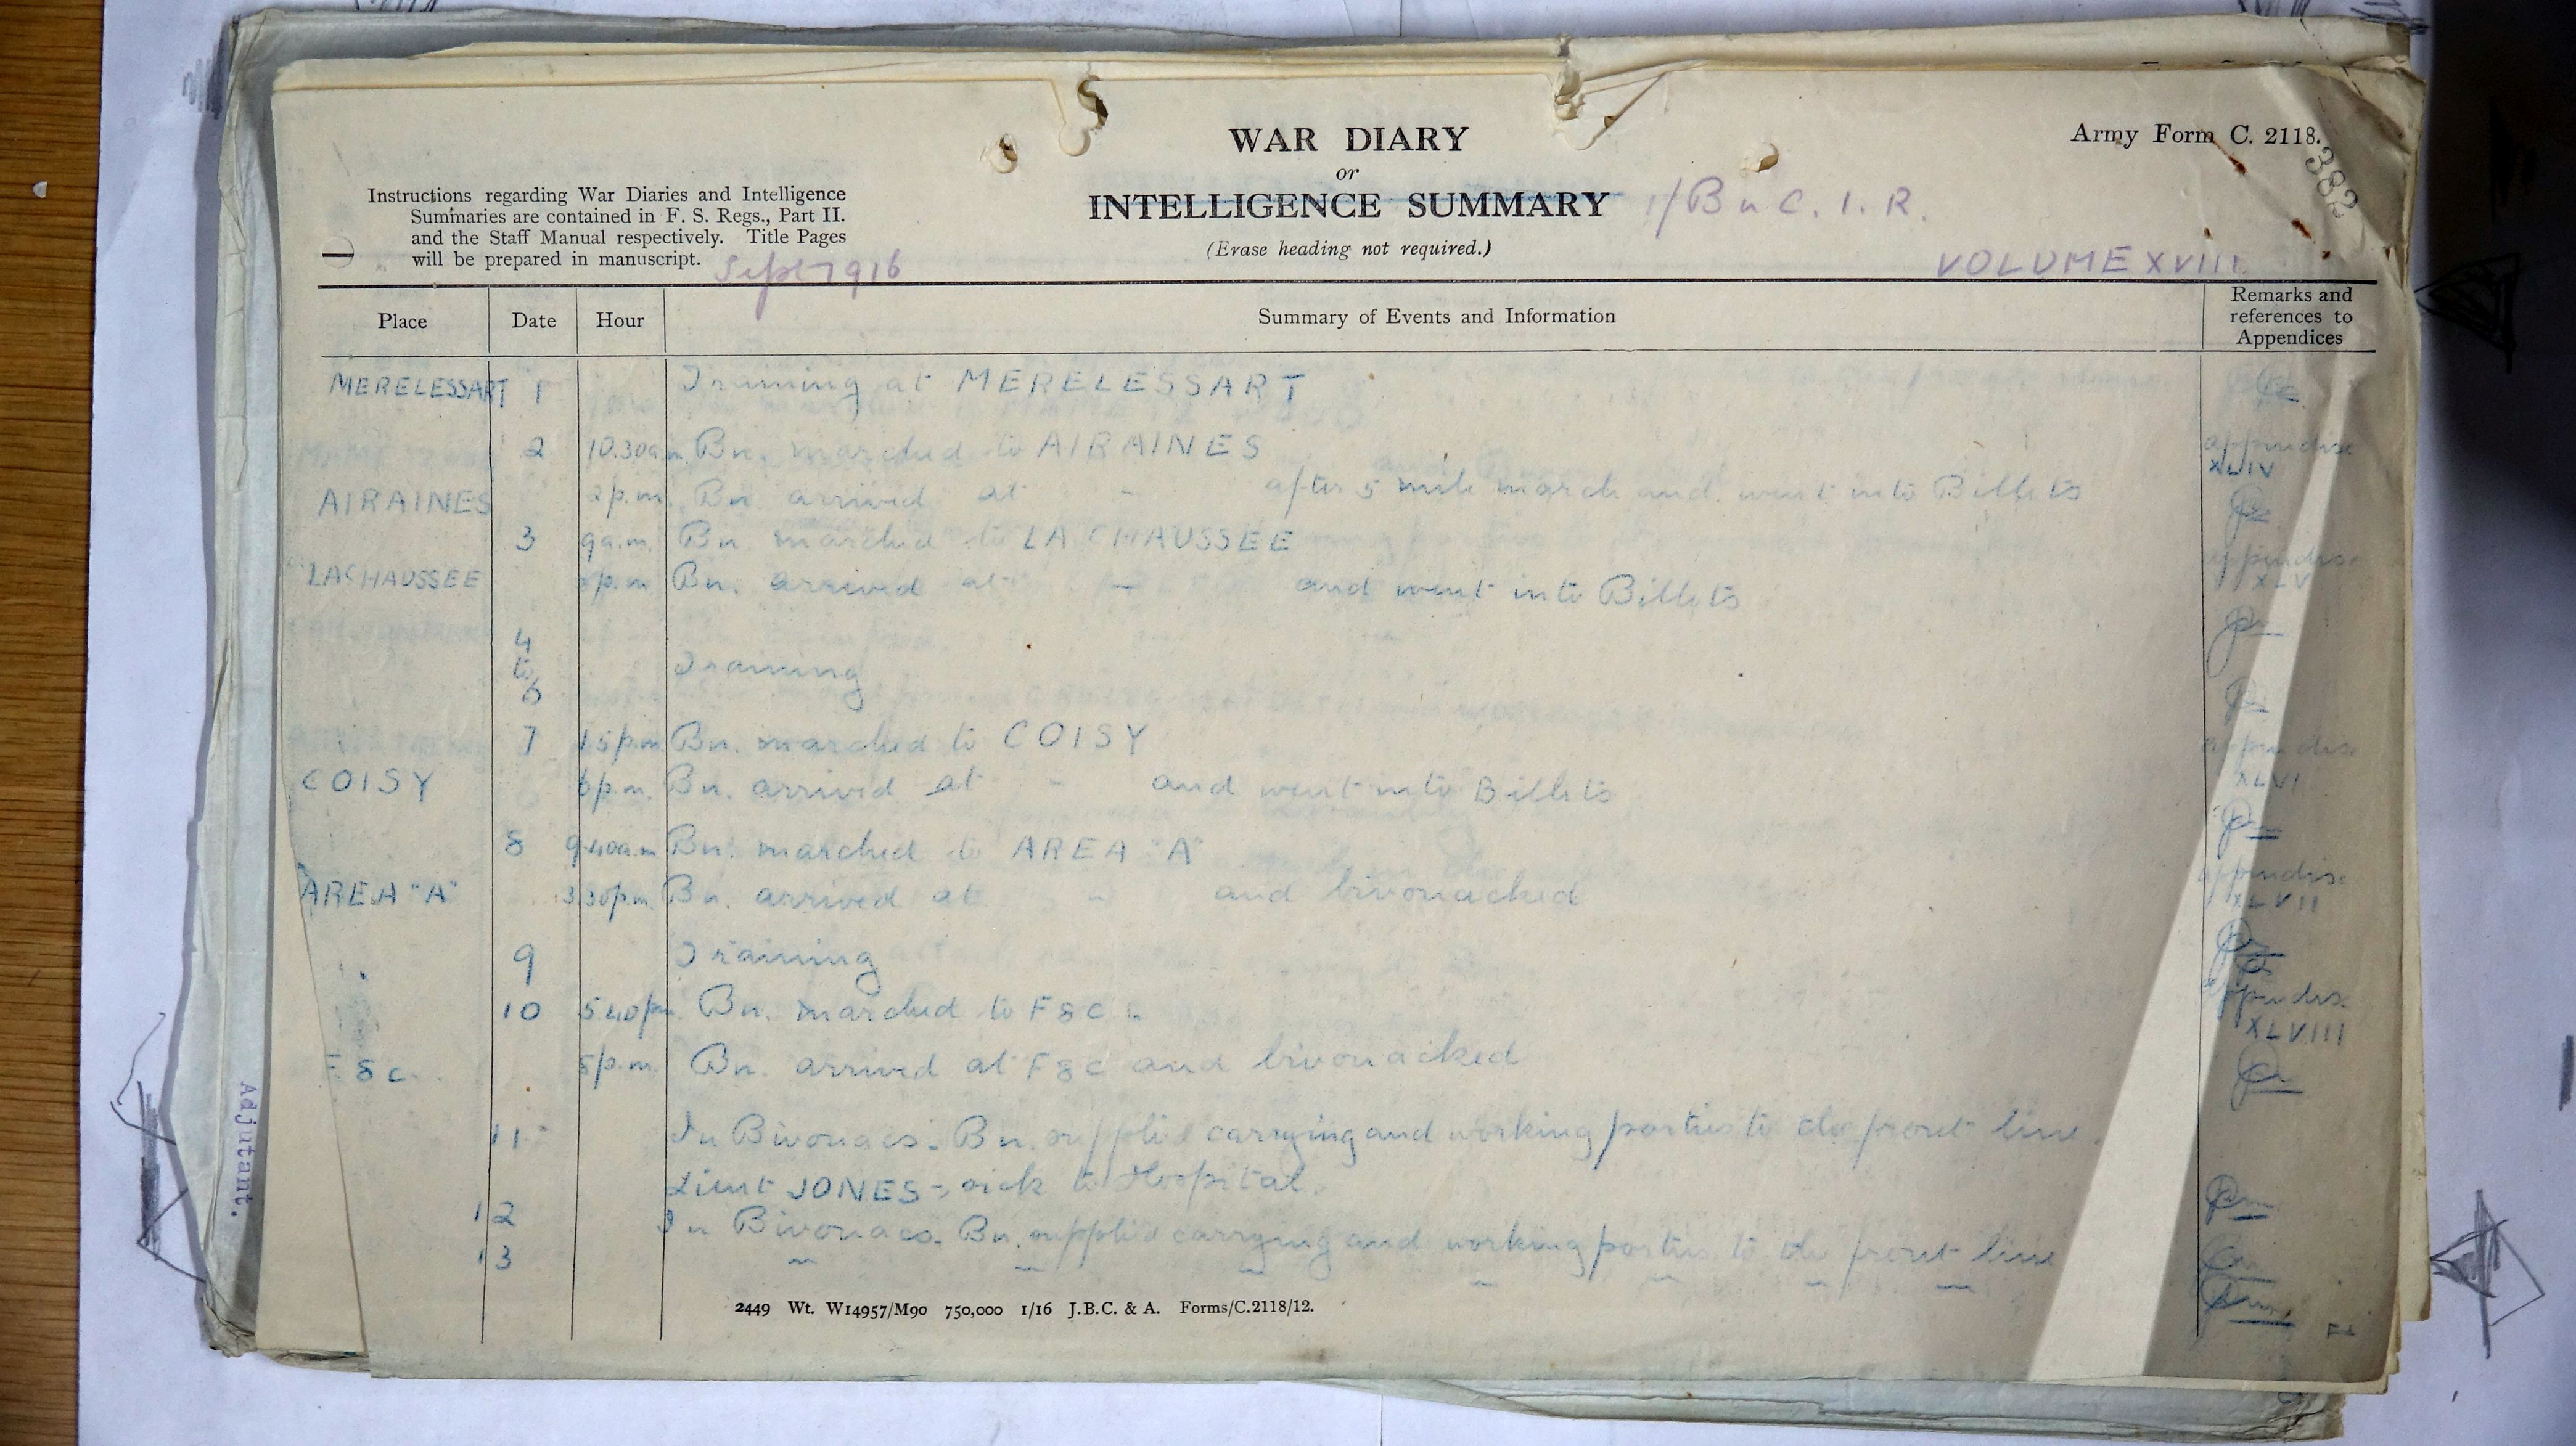 WAR DIARY
or
INTELLIGENCE SUMMARY
(Erase heading not required.)
Army Form C. 2118.
382
Instructions regarding War Diaries and Intelligence
Summaries are contained in F. S. Regs., Part II.
and the Staff Manual respectively. Title Pages
will be prepared in manuscript.
Sept 1916
1/Bn C. I. R.
VOLUME XVIII
Place Date Hour Summary of Events and Information Remarks and references to Appendices
MERELESSART 1 Training at MERELESSART
2 10.30a.m. Bn. marched to AIRAINES appendix XLIV
AIRAINES 2p.m. Bn arrived at - after 5 mile march and went into Billets
3 9a.m. Bn. marched to LA CHAUSSEE appendix XLV
LACHAUSSEE p.m Bn. arrived at - and went into Billets
4
to Training
6
7 15p.m Bn. marched to COISY appendix XLVI
COISY 6p.m. Bn. arrived at - and went into Billets
8 9.40a.m Bn. marched to AREA "A" appendix XLVII
AREA "A" 3.30p.m. Bn. arrived at - and bivouacked
" 9 Training
10 5.40pm. Bn. marched to F8c appendix XLVIII
F8c. 8p.m. Bn. arrived at F8c and bivouacked
11 In Bivouacs. Bn. supplied carrying and working parties to the front line.
Lieut JONES - sick to Hospital.
12 In Bivouacs. Bn. supplied carrying and working parties to the front line
13 " " " " " " "
2449 Wt. W14957/M90 750,000 1/16 J.B.C. & A. Forms/C.2118/12.
Adjutant.